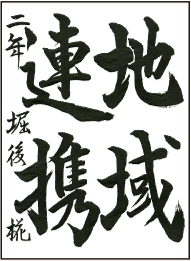 地域
連携
二年 堀後 椛